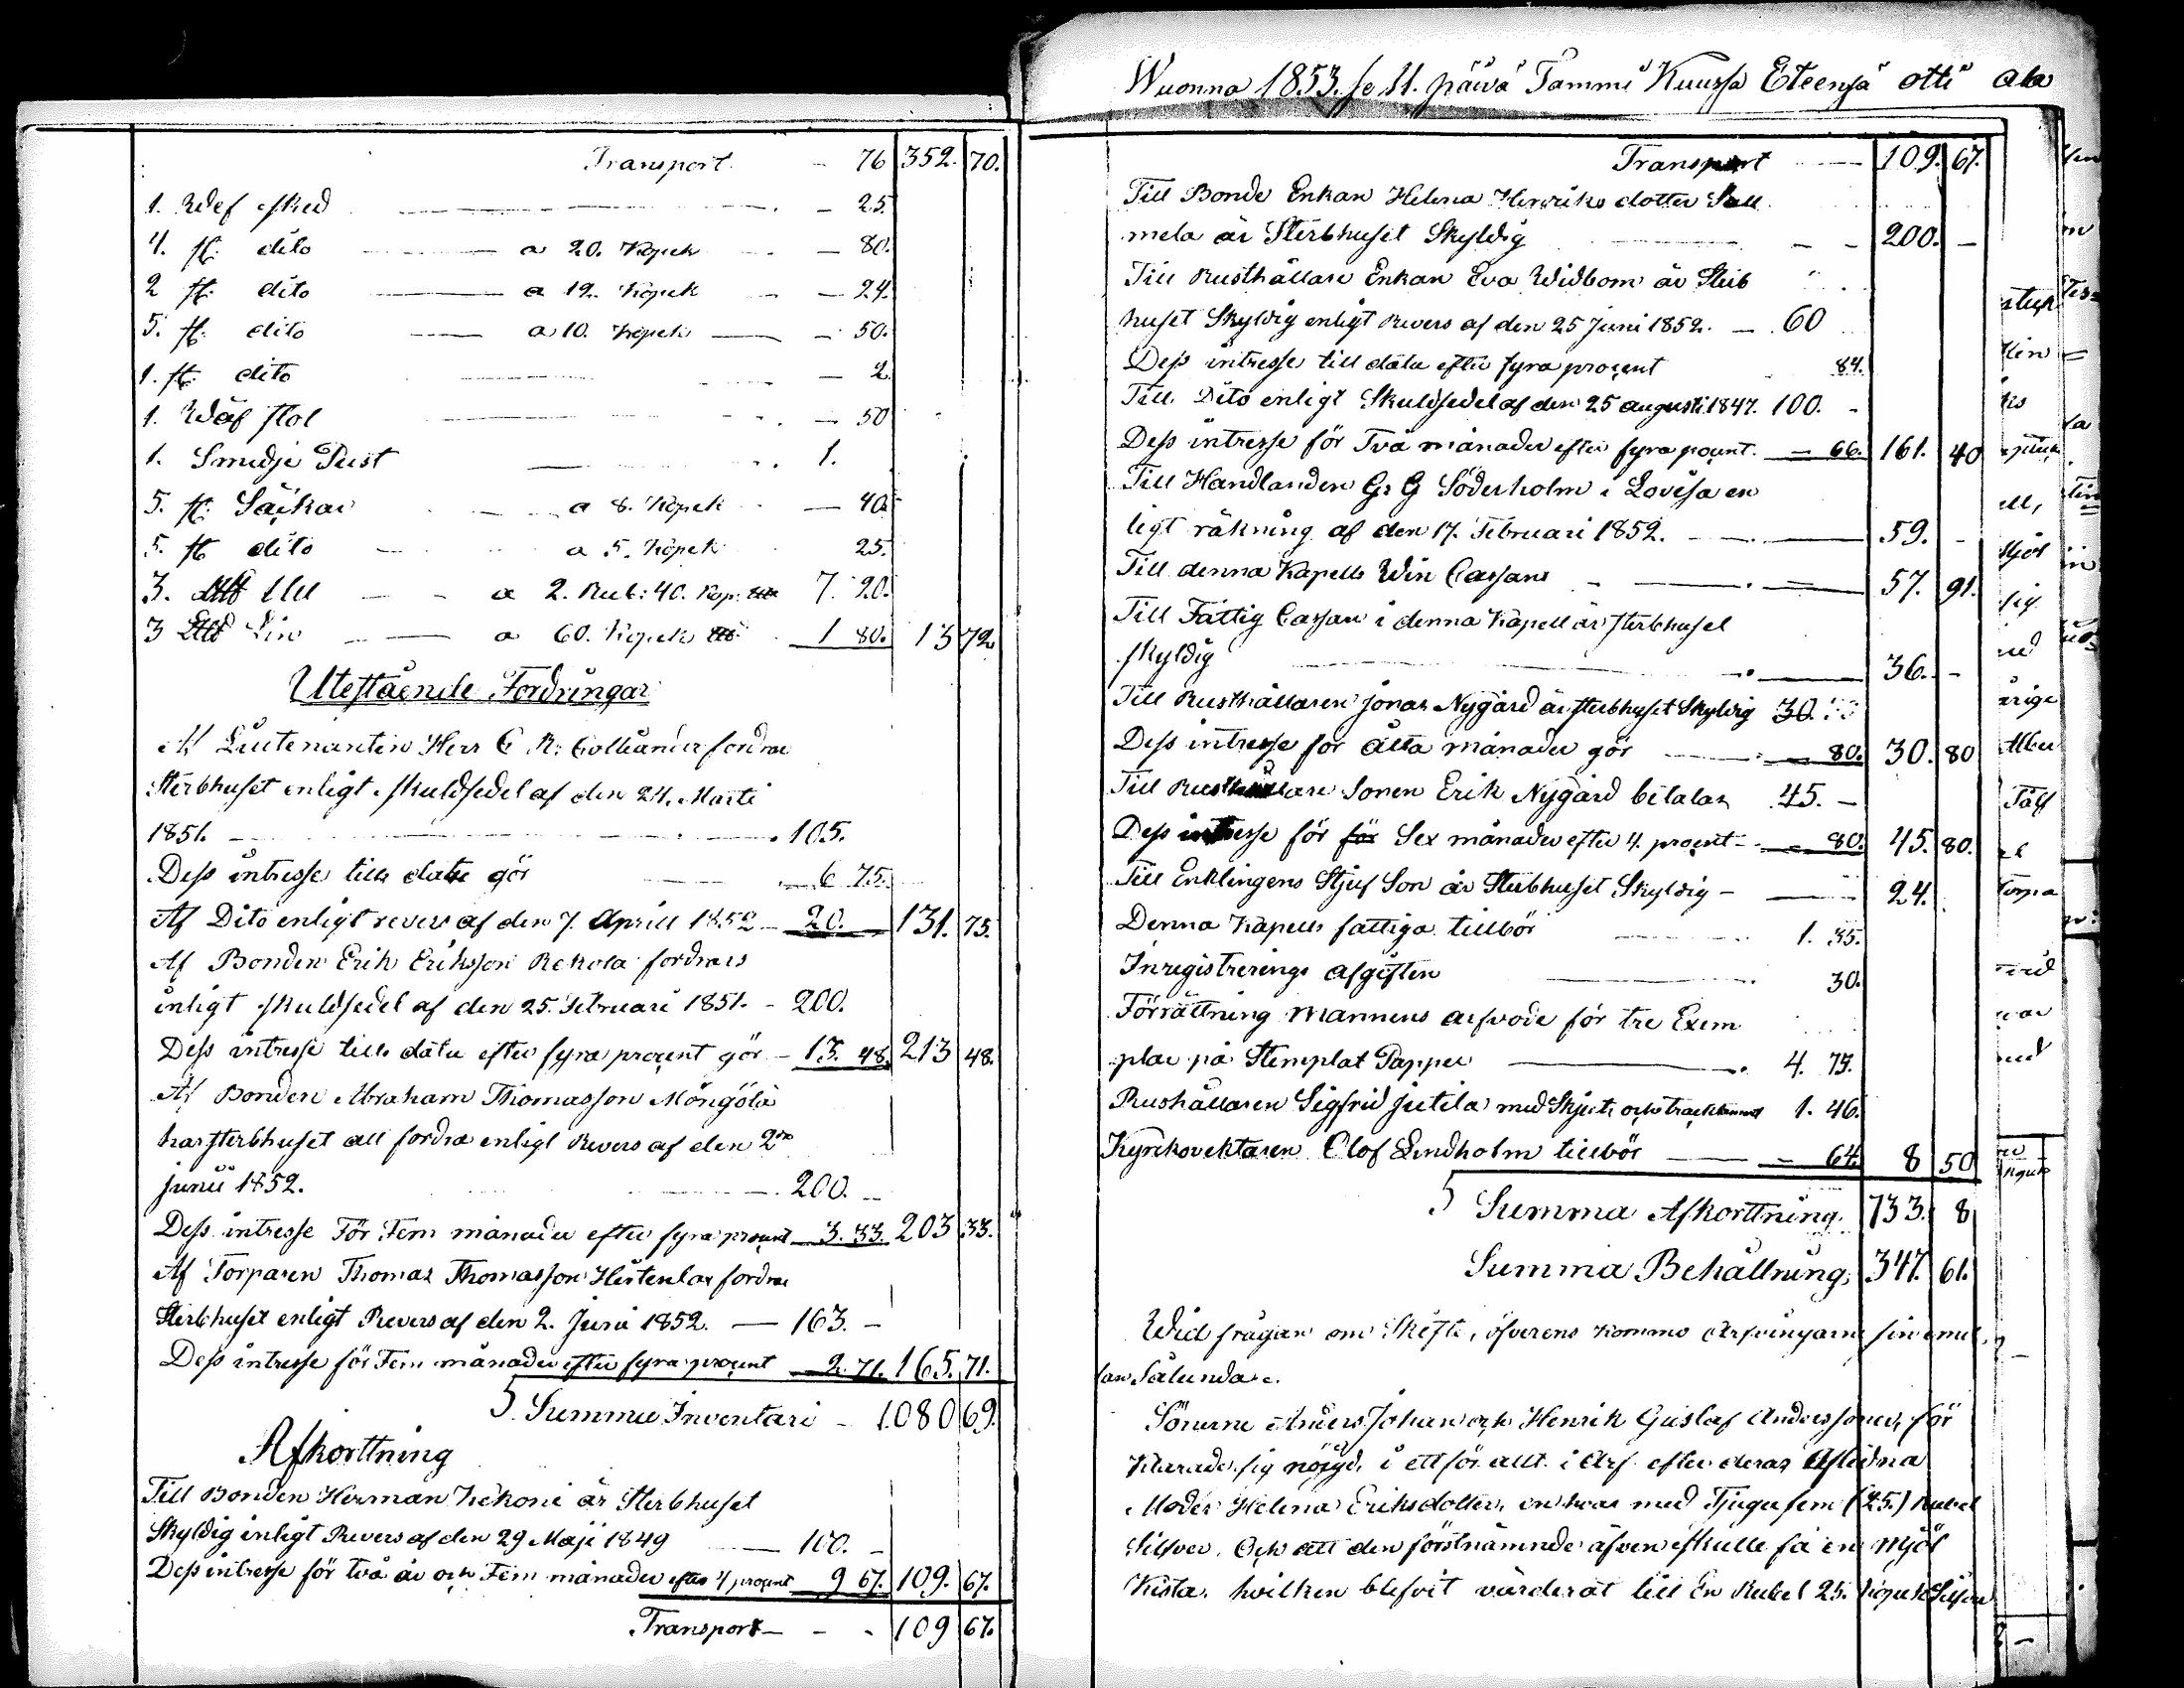 Transport - 76 352. 70.
1. Wef sked - 25.
4. st. dito a 20. Kopek - 80.
2 st. dito a 12. Kopek - 24.
5. st. dito a 10. Kopek - 50.
1. st. dito - 2.
1. Wäf stol - 50
1. Smidje Pust 1.
5. st. Säckar a 8. Kopek - 40.
5. st. dito a 5. Kopek 25.
3. Ull a 2. Rub: 40. Kop. 7. 20.
3 Lin a 60. Kopek 1 80. 13 72.
Utestående Fordringar
Af Lieutenanten Herr C. R. Colliander fordrar
Sterbhuset enligt skuldsedel af den 24. Marti
1851. 105.
Dess intresse till dato gör 6 75.
Af Dito enligt revers af den 7. Aprill 1852 - 20. 131. 75.
Af Bonden Erik Eriksson Rekola fordras
inligt skuldsedel af den 25. Februari 1851. - 200.
Dess intresse till dato efter fyra procent gör - 13. 48. 213 48.
Af Bonden Abraham Thomasson Möngölä
har sterbhuset att fordra enligt Revers af den 2dn
junii 1852. 200.
Dess intresse För Fem månader efter fyra procent 3. 33. 203 33.
Af Torparen Thomas Thomasson Histenlax fordrar
Sterbhuset enligt Revers af den 2. Juni 1852. - 163. -
Dess intresse för Fem månader efter fyra procent 2. 71. 165. 71.
Summa Inventari - 1080 69.
Afkorttning
Till Bonden Herman Kekoni är Sterbhuset
Skyldig inligt Revers af den 29 Maji 1849 100. -
Dess intresse för två år och Fem månader efter 4 procent 9 67. 109. 67.
Transport - - - 109 67.
Wuonna 1853. se 11. päivä Tammi Kuussa Eteensä otti ala
Transport 109. 67.
Till Bonde Enkan Helena Henriks dotter Sall
mela är Sterbhuset Skyldig - - 200. -
Till Rusthållare Enkan Eva Widbom är Sterb
huset Skyldig enligt Revers af den 25 Juni 1852. - 60
Dess intresse till dato efter fyra procent 84.
Till Dito enligt Skuldsedel af den 25 augusti 1847. 100. -
Dess intresse för Två månader efter fyra procent. - 66. 161. 40
Till Handlanden G: G Söderholm i Lovisa en
ligt räkning af den 17. Februari 1852. 59. -
Till denna Kapells Win Cassans 57. 91.
Till Fattig Cassan i denna Kapell är sterbhuset
skyldig 36. -
Till Rusthållaren Jonas Nygård är sterbhuset Skyldig 30.
Dess intresse för åtta månader gör 80. 30. 80
Till Rusthållare Sonen Erik Nygård betalas 45. -
Dess intresse för för Sex månader efter 4. procent - 80. 45. 80.
Till Enklingens Stjuf Son är Sterbhuset Skyldig - 24.
Denna Kapells fattiga tillbör 1. 35.
Inregistrerings afgiften 30.
Förrättning mannens arfvode för tre Exem
plar på Stemplat Papper 4. 75.
Rushållaren Sigfrid Jutila med Skjuts och tracktament 1. 46.
Kyrkovektaren Olof Lindholm tillbör - 64. 8 50
Summa Afkorttning. 733. 8
Summa Behållning, 347. 61.
Wid frågan om Skifte, öfverens kommo Arfvingarne sin emel
lan Sålunda.
Sönerne Anders Johan och Henrik Gustaf Anderssoner, för
klarade sig nöjgd, i ett för allt i Arf efter deras Aflidna
Moder Helena Eriksdotter, en hvar med Tjugu fem (25.) Rubel
Silfver. Och att den förstnämnde äfven skulle få en Mjöl
Kista, hvilken blifvit värderat till En Rubel 25. Kopek Silfver